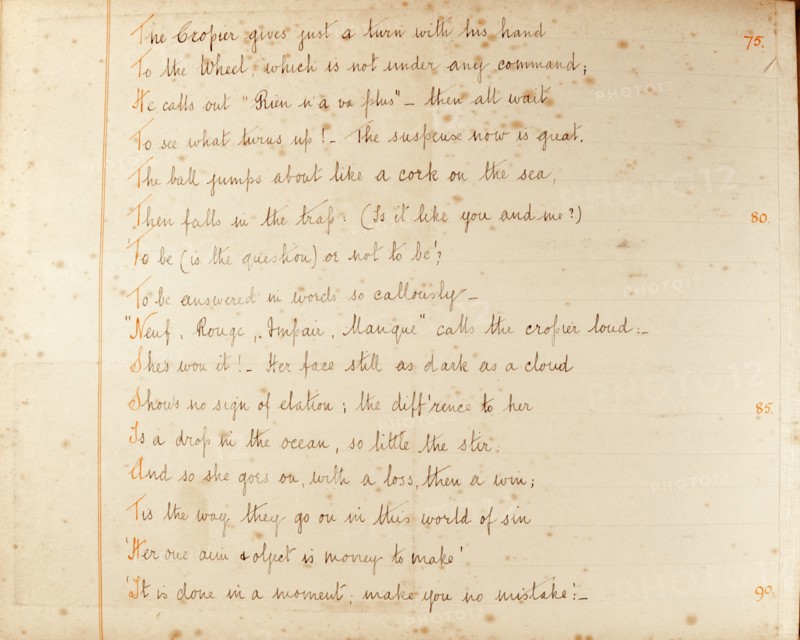 The Cropier gives just a turn with his hand
75.
To the Wheel, which is not under any command;
He calls out "Rien n'a va plus" – then all wait
To see what turns up! – The suspense now is great.
The ball jumps about like a cork on the sea,
Then falls in the trap: (Is it like you and me?)
80.
'To be (is the question) or not to be'?
To be answered in words so callously –
"Neuf, Rouge, Impair, Manque" calls the cropier loud: –
Shes won it! – Her face still as dark as a cloud
Shows no sign of elation; the diff'rence to her
85.
Is a drop in the ocean, so little the stir.
And so she goes on, with a loss, then a win;
Tis the way they go on in this world of sin
'Her one aim & object is money to make'
'It is done in a moment: make you no mistake'! –
90.
PHOTO12